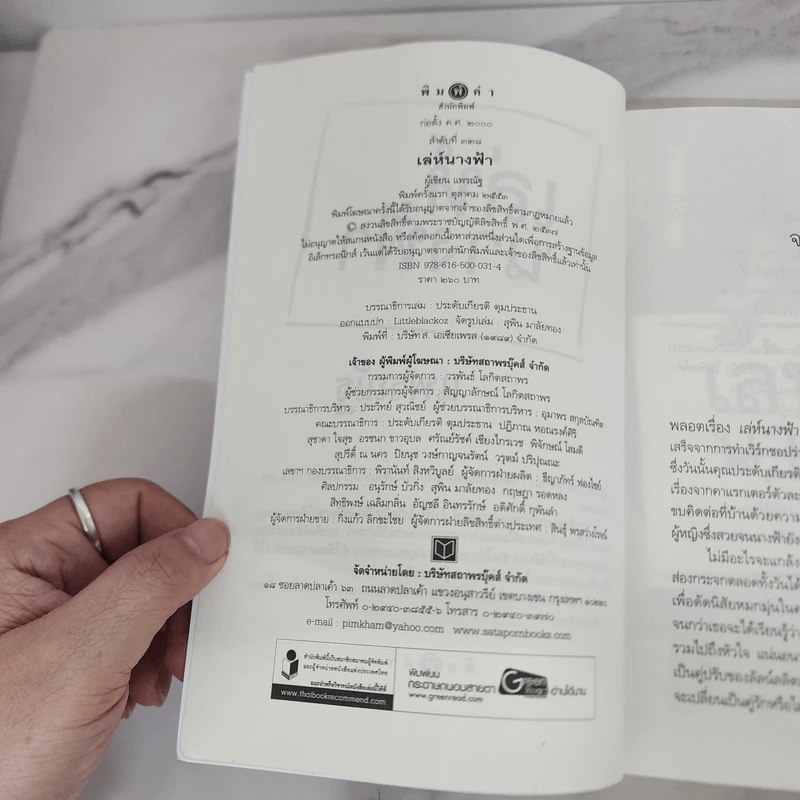 พิมพ์คำ
สำนักพิมพ์
ก่อตั้ง ค.ศ. ๒๐๐๐
ลำดับที่ ๓๒๘
เล่ห์นางฟ้า
ผู้เขียน แพรณัฐ
พิมพ์ครั้งแรก ตุลาคม ๒๕๕๓
พิมพ์โฆษณาครั้งนี้ได้รับอนุญาตจากเจ้าของลิขสิทธิ์ตามกฎหมายแล้ว
© สงวนลิขสิทธิ์ตามพระราชบัญญัติลิขสิทธิ์ พ.ศ. ๒๕๓๗
ไม่อนุญาตให้สแกนหนังสือ หรือคัดลอกเนื้อหาส่วนหนึ่งส่วนใดเพื่อการสร้างฐานข้อมูล
อิเล็กทรอนิกส์ เว้นแต่ได้รับอนุญาตจากสำนักพิมพ์และเจ้าของลิขสิทธิ์แล้วเท่านั้น
ISBN 978-616-500-031-4
ราคา ๒๖๐ บาท
บรรณาธิการเล่ม : ประดับเกียรติ ตุมประธาน
ออกแบบปก : Littleblackoz จัดรูปเล่ม : สุพิน มาลัยทอง
พิมพ์ที่ : บริษัท ส. เอเซียเพรส (๑๙๘๙) จำกัด
เจ้าของ ผู้พิมพ์ผู้โฆษณา : บริษัทสถาพรบุ๊คส์ จำกัด
กรรมการผู้จัดการ : วรพันธ์ โลกิตสถาพร
ผู้ช่วยกรรมการผู้จัดการ : สัญญาลักษณ์ โลกิตสถาพร
บรรณาธิการบริหาร : ประวิทย์ สุวณิชย์ ผู้ช่วยบรรณาธิการบริหาร : อุมาพร สกุลบัณฑิต
คณะบรรณาธิการ : ประดับเกียรติ ตุมประธาน ปฏิภาณ หอณรงค์ศิริ
สุชาดา ใจสุข อรชนก ขาวอุบล ศรัณย์รัชต์ เซียงไกรเวช พิจักษณ์ โสมดี
สุปรีดิ์ ณ นคร ปิยนุช วงษ์กาญจนรัตน์ วรุตม์ ปริปุณณะ
เลขาฯ กองบรรณาธิการ : พิรานันท์ สิงหวิบูลย์ ผู้จัดการฝ่ายผลิต : ธีญาภัทร์ ฟองไชย์
ศิลปกรรม : อนุรักษ์ บัวกิ่ง สุพิน มาลัยทอง กฤษฎา รอดหลง
สิทธิพงษ์ เฉลิมกลิ่น อัญชลี อินทรรักษ์ อดิศักดิ์ กุพันลำ
ผู้จัดการฝ่ายขาย : กิ่งแก้ว ลิกขะไชย ผู้จัดการฝ่ายลิขสิทธิ์ต่างประเทศ : สินธุ์ พรสว่างโรจน์
จัดจำหน่ายโดย : บริษัทสถาพรบุ๊คส์ จำกัด
๑๘ ซอยลาดปลาเค้า ๖๓ ถนนลาดปลาเค้า แขวงอนุสาวรีย์ เขตบางเขน กรุงเทพฯ ๑๐๒๒๐
โทรศัพท์ ๐-๒๙๔๐-๓๘๕๕-๖ โทรสาร ๐-๒๙๔๐-๓๙๗๐
e-mail : pimkham@yahoo.com www.satapornbooks.com
สำนักพิมพ์นี้เป็นสมาชิกสมาคมผู้จัดพิมพ์
และผู้จำหน่ายหนังสือแห่งประเทศไทย
แนะนำหรือวิจารณ์หนังสือเล่มนี้ได้ที่
www.thaibookrecommend.com
พิมพ์บน
กระดาษถนอมสายตา Green Read อ่านได้นาน
www.greenread.com
จ
พลอตเรื่อง เล่ห์นางฟ้า
เสร็จจากการทำเวิร์กชอปร่ว
ซึ่งวันนั้นคุณประดับเกียรติ
เรื่องจากคาแรกเตอร์ตัวละ
ขบคิดต่อที่บ้านด้วยความ
ผู้หญิงซึ่งสวยจนนางฟ้ายัง
ไม่มีอะไรจะแกล้ง
ส่องกระจกตลอดทั้งวันได้
เพื่อดัดนิสัยหมกมุ่นในค
จนกว่าเธอจะได้เรียนรู้ว่า
รวมไปถึงหัวใจ แน่นอน
เป็นคู่ปรับของลัลน์ลลิต
จะเปลี่ยนเป็นคู่รักหรือไ